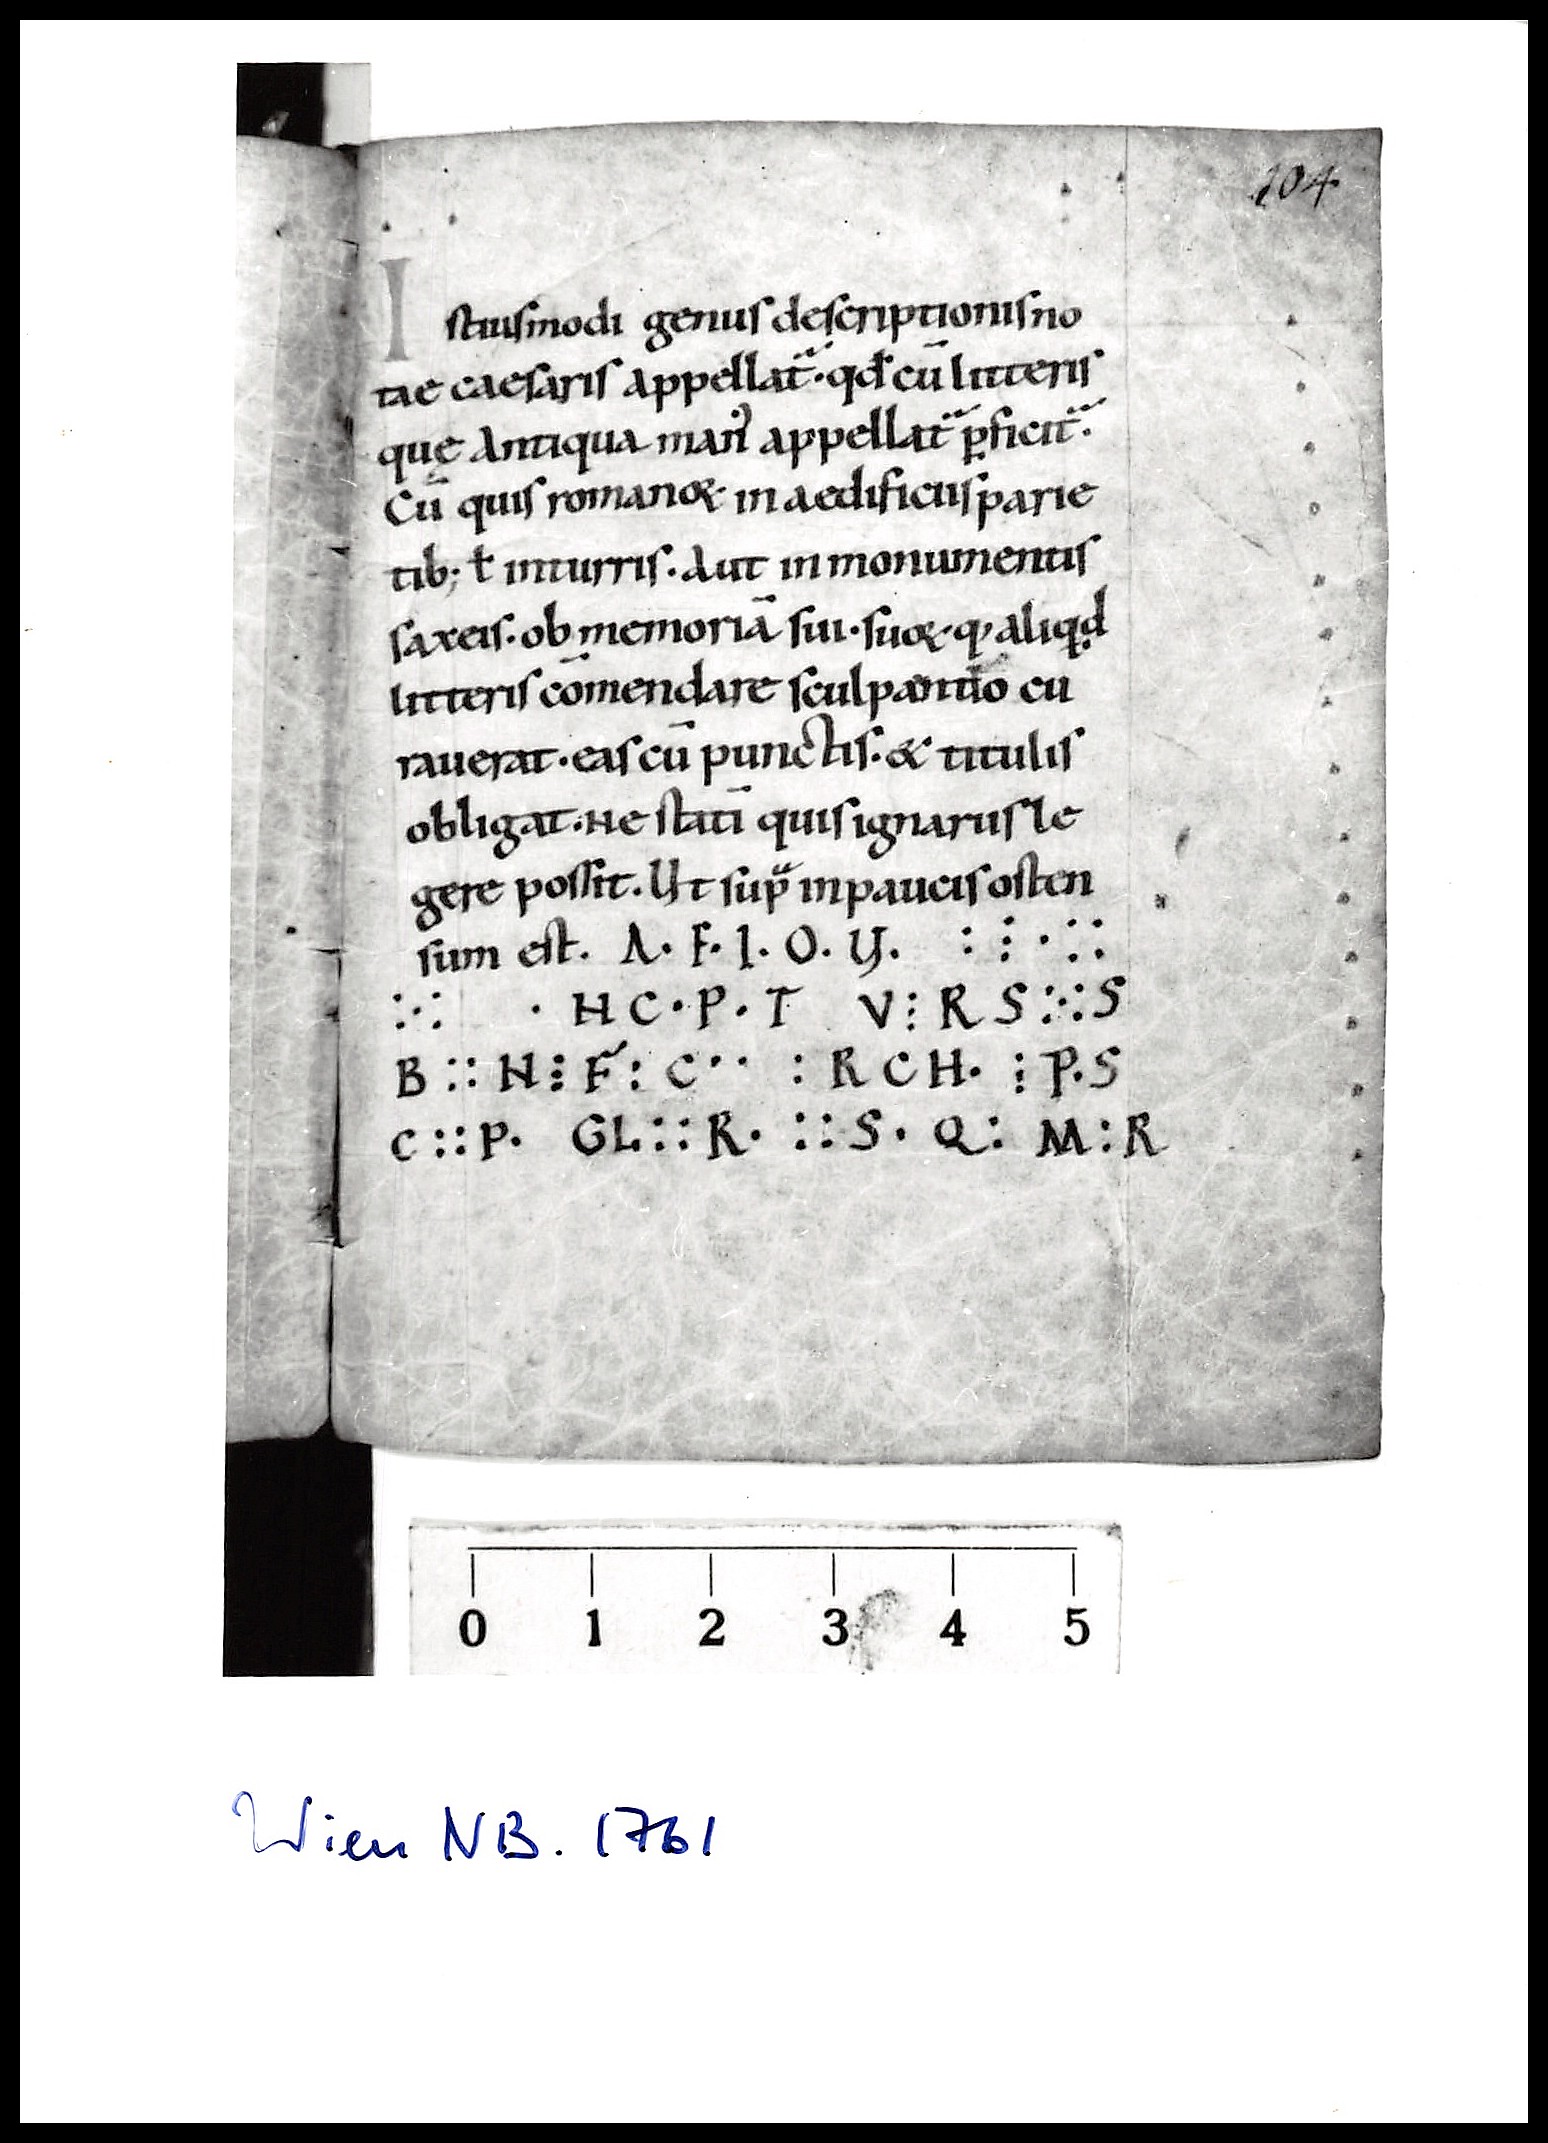 104
Istiusmodi genus descriptionis no
tae caesaris appellatᷓ·qđ cū litteris
quę Antiqua man᷒ appellatᷓ ꝑficitᷓ.
Cū quis romanoꝝ in aedificiis parie
tib; ł inturris. Aut in monumentis
saxeis· ob memoriā sui· suoꝝ· q· aliqd
litteris cōmendare sculpantiō cu
rauerat· eas cū punctis· & titulis
obligat· Ne statī quis ignarus le
gere possit. Ut supᷓ in paucis osten
sum est. A· F· I· O· Y. : ⁝ · ∷
⁙ · H C · P · T V ⁝ R S ⁙ S
B ∷ N ⁝ F : C ·· : R C H · ⁝ P · S
C ∷ P · G L ∷ R · ∷ S · Q : M : R
0 1 2 3 4 5
Wien NB. 1761